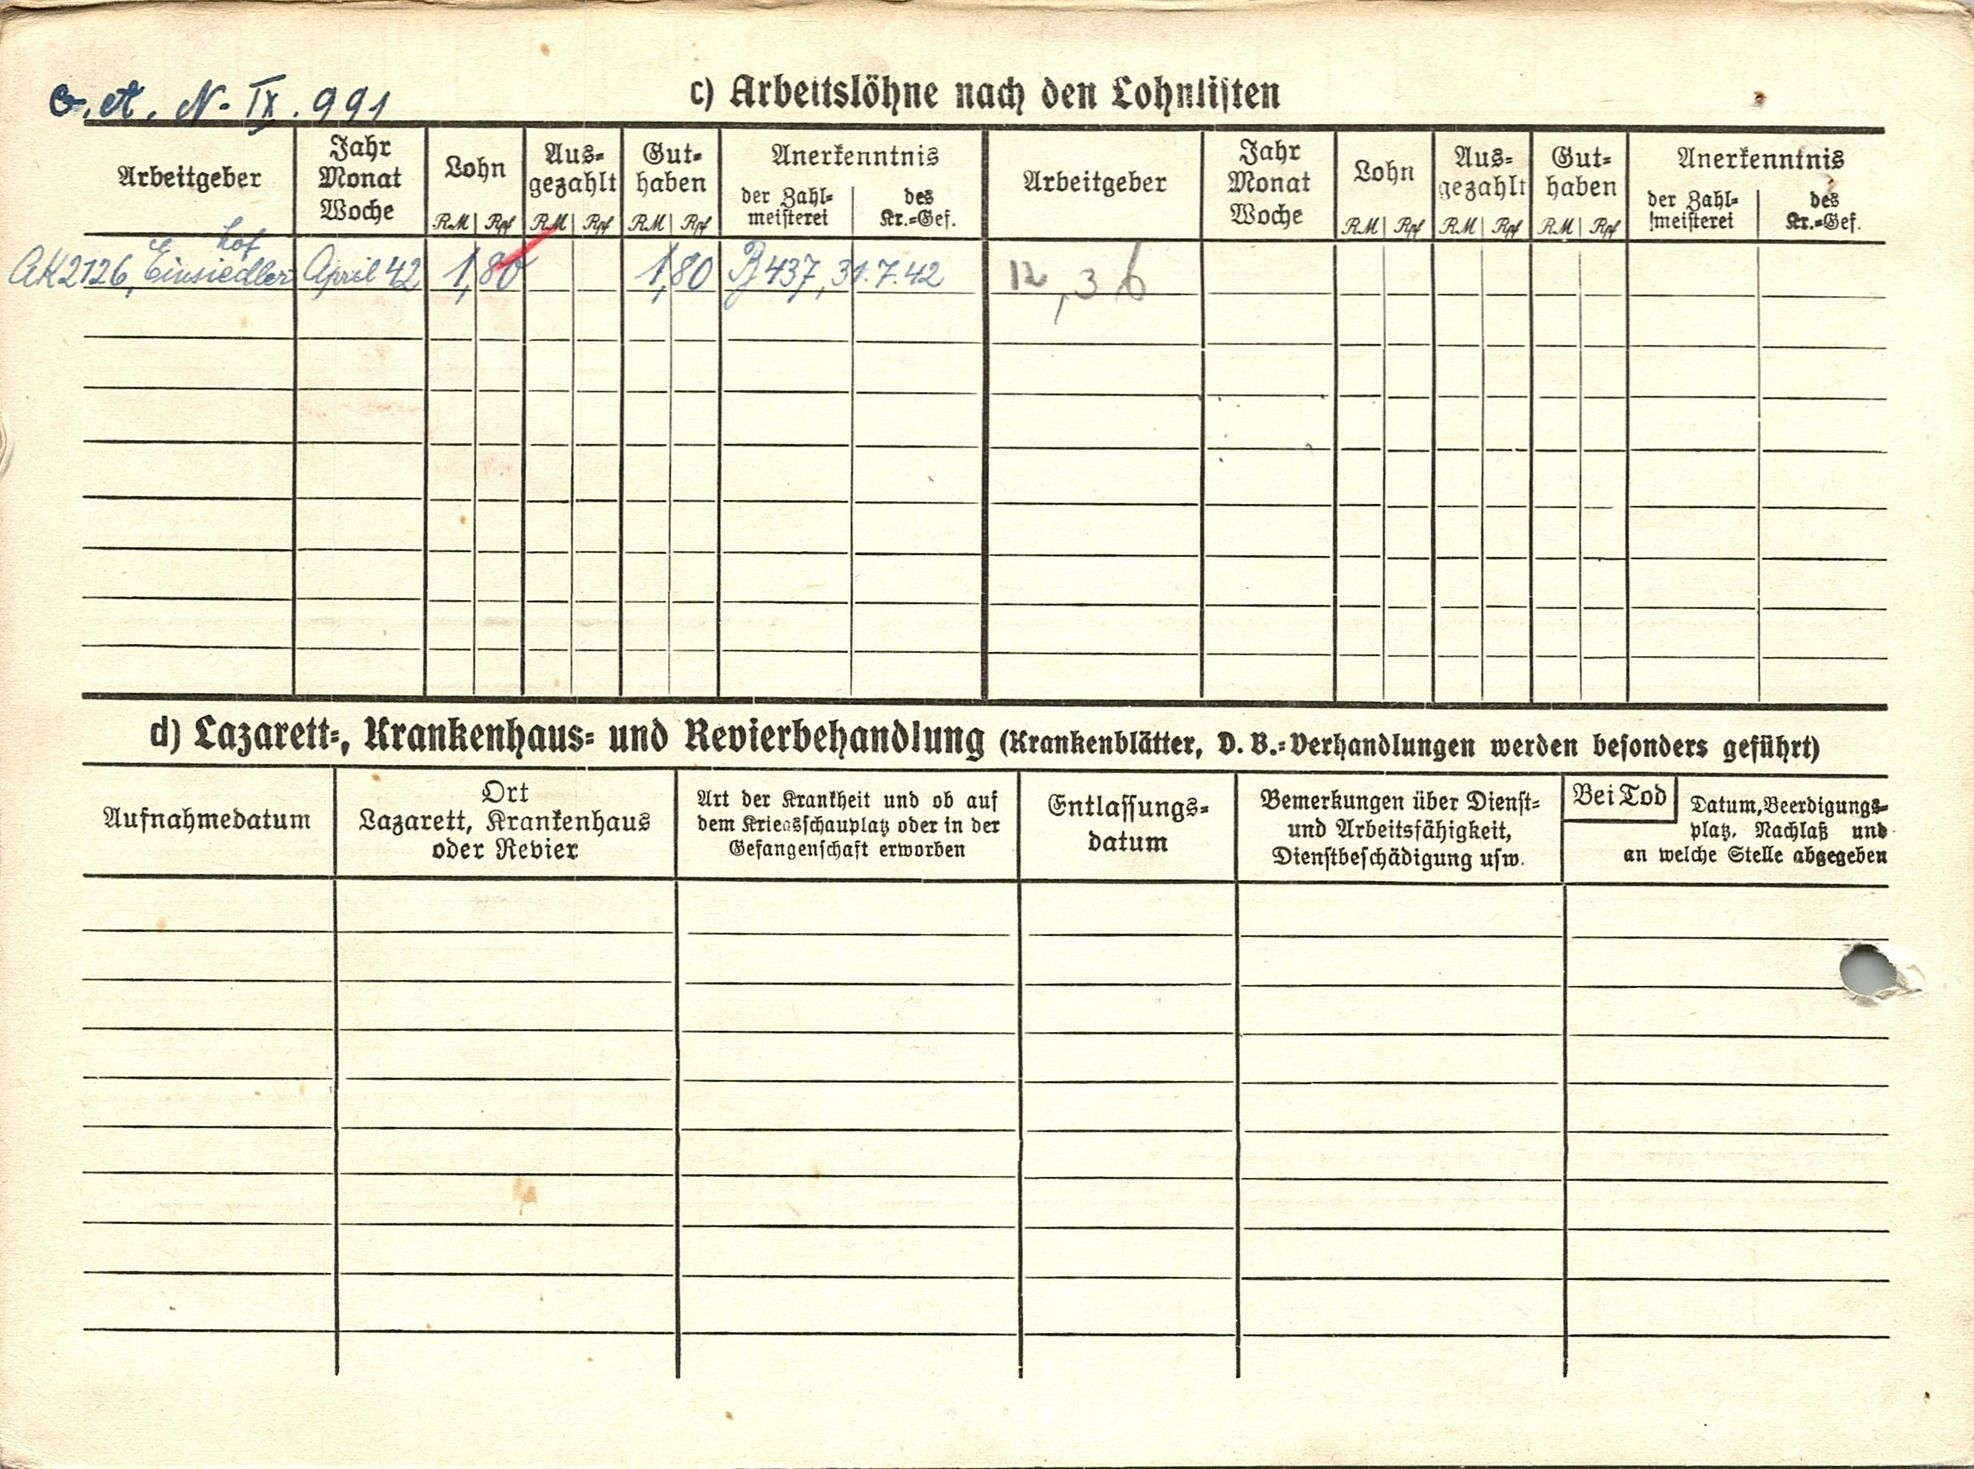 N. IX. 991
c) Arbeitslöhne nach den Lohnlisten
Arbeitgeber
Jahr
Monat
Woche
Lohn
RM Rpf
Aus-
gezahlt
RM Rpf
Gut-
haben
RM Rpf
Anerkenntnis
der Zahl-
meisterei
des
Kr.-Gef.
Arbeitgeber
Jahr
Monat
Woche
Lohn
RM Rpf
Aus-
gezahlt
RM Rpf
Gut-
haben
RM Rpf
Anerkenntnis
der Zahl-
meisterei
des
Kr.-Gef.
hof
AK 2126, Einsiedler April 42 1,80 1,80 B 437, 31.7.42 12,36
d) Lazarett-, Krankenhaus- und Revierbehandlung (Krankenblätter, D. B.-Verhandlungen werden besonders geführt)
Aufnahmedatum
Ort
Lazarett, Krankenhaus
oder Revier
Art der Krankheit und ob auf
dem Kriegsschauplatz oder in der
Gefangenschaft erworben
Entlassungs-
datum
Bemerkungen über Dienst-
und Arbeitsfähigkeit,
Dienstbeschädigung usw.
Bei Tod
Datum, Beerdigungs-
platz, Nachlaß und
an welche Stelle abgegeben